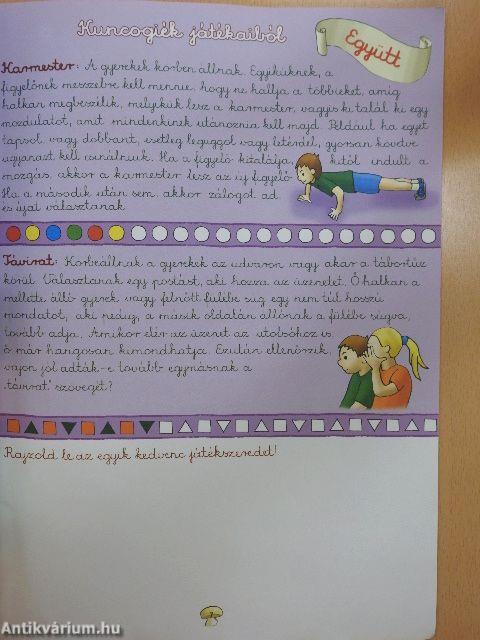 Kuncogiék játékaiból
Együtt
Karmester: A gyerekek körben állnak. Egyiküknek, a
figyelőnek messzebre kell mennie, hogy ne hallja a többieket, amíg
halkan megbeszélik, melyikük lesz a karmester, vagyis ki talál ki egy
mozdulatot, amit mindenkinek utánoznia kell majd. Például ha egyet
tapsol, vagy dobbant, esetleg leguggol vagy letérdel, gyorsan követve
ugyanazt kell csinálniuk. Ha a figyelő kitalálja, kitől indult a
mozgás, akkor a karmester lesz az új figyelő.
Ha a második után sem, akkor zálogot ad
és újat választanak.
Távirat: Körbeállnak a gyerekek az udvaron vagy akár a tábortűz
körül. Választanak egy postást, aki hozza az üzenetet. Ő halkan a
mellette álló gyerek vagy felnőtt fülébe súg egy nem túl hosszú
mondatot, aki pedig a másik oldalán állónak a fülébe súgva,
tovább adja. Amikor elér az üzenet az utolsóhoz is,
ő már hangosan kimondhatja. Ezután ellenőrzik,
vajon jól adták-e tovább egymásnak a
„távirat" szövegét?
Rajzold le az egyik kedvenc játékszeredet!
7
Antikvárium.hu